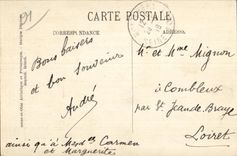 91
CARTE POSTALE
CORRESPONDANCE
ADRESSE
Bons baisers
et bon souvenir
André
Mr et Mme Mignon
à Combleux
par St Jean de Braye
Loiret
ainsi qu'à Mesdes Carmen
et Marguerite